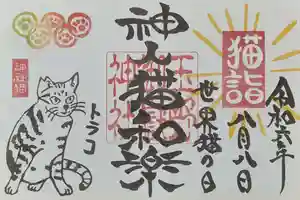 令和六年
猫詣
八月八日
世界猫の日
神人猫和楽
トラコ